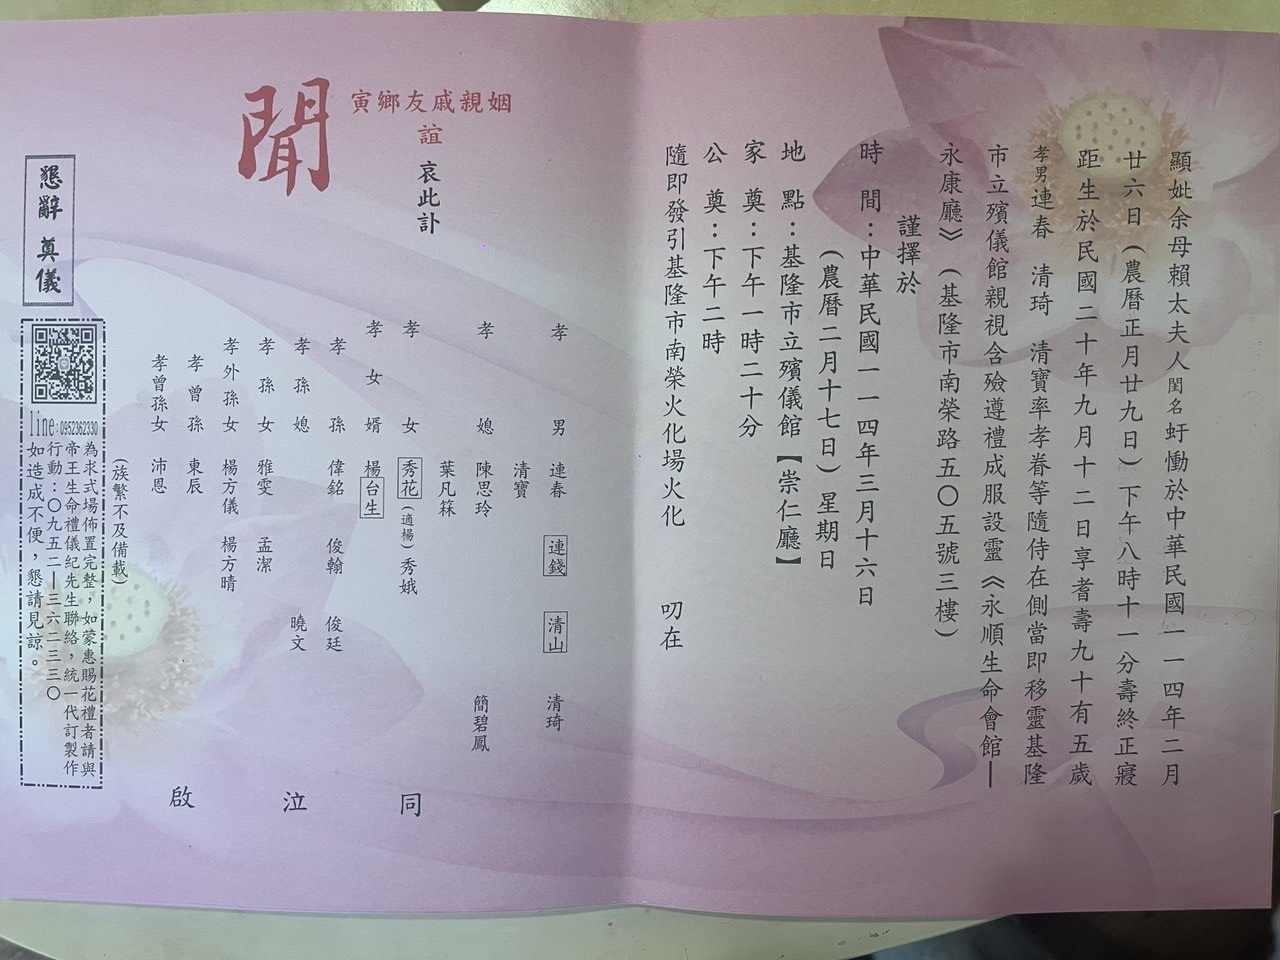 顯妣余母賴太夫人閨名蚜慟於中華民國一一四年二月
廿六日（農曆正月廿九日）下午八時十一分壽終正寢
距生於民國二十年九月十二日享耆壽九十有五歲
孝男連春 清琦 清寶率孝眷等隨侍在側當即移靈基隆
市立殯儀館親視含殮遵禮成服設靈《永順生命會館—
永康廳》（基隆市南榮路五〇五號三樓）
謹擇於
時 間：中華民國一一四年三月十六日
（農曆二月十七日）星期日
地 點：基隆市立殯儀館【崇仁廳】
家 奠：下午一時二十分
公 奠：下午二時
隨即發引基隆市南榮火化場火化 叨在
姻親戚友鄉寅
誼
哀此訃
聞
孝 男 連春 連錢 清山 清琦
清寶
孝 媳 陳思玲 簡碧鳳
葉凡箖
孝 女 秀花（適楊）秀娥
孝 女 婿 楊台生
孝 孫 偉銘 俊翰 俊廷
孝 孫 媳 曉文
孝 孫 女 雅雯 孟潔
孝外孫女 楊方儀 楊方晴
孝 曾 孫 東辰
孝曾孫女 沛恩
（族繁不及備載）
同 泣 啟
懇辭 奠儀
line:0952362330
為求式場佈置完整，如蒙惠賜花禮者請與
帝王生命禮儀紀先生聯絡，統一代訂製作
行動：〇九五二—三六二三三〇
如造成不便，懇請見諒。